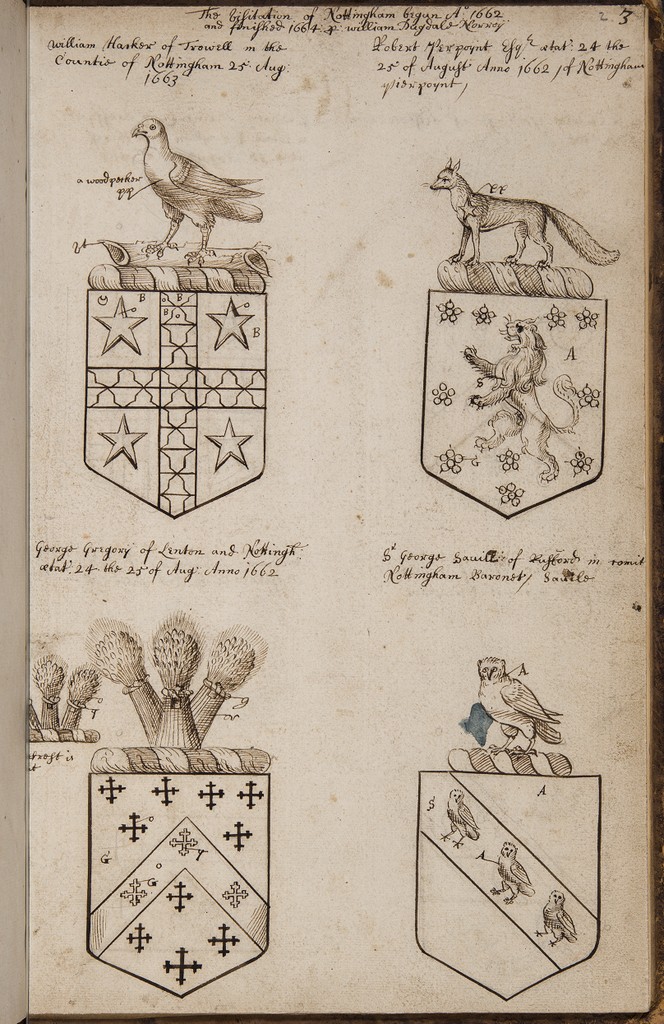 The Visitation of Nottingham begun Aº 1662
and finished 1664 p: william Dugdale Norroy
2 3
william Hacker of Trowell in the
Countie of Nottingham 25 Aug:
1663
Robert Pierpoynt Esqr ætat: 24 the
25 of August Anno 1662 / of Nottingham
pierpoynt /
a woodpecker
pp
B
B
B
B
A
S
G
George Gregory of Lenton and Nottingh:
ætat: 24 the 25 of Aug: Anno 1662
Sr George Savile of Rufford in comit
Nottingham Baronet / Savile
A
G
G
A
S
A